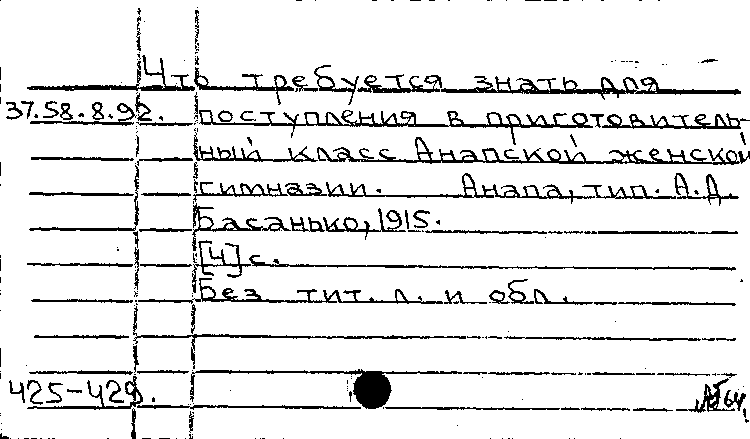 Что требуется знать для
37.58.8.92. поступления в приготовитель-
ный класс Анапской женской
гимназии. Анапа, тип. А.Д.
Басанько, 1915.
[4] с.
Без тит. л. и обл.
425-429.